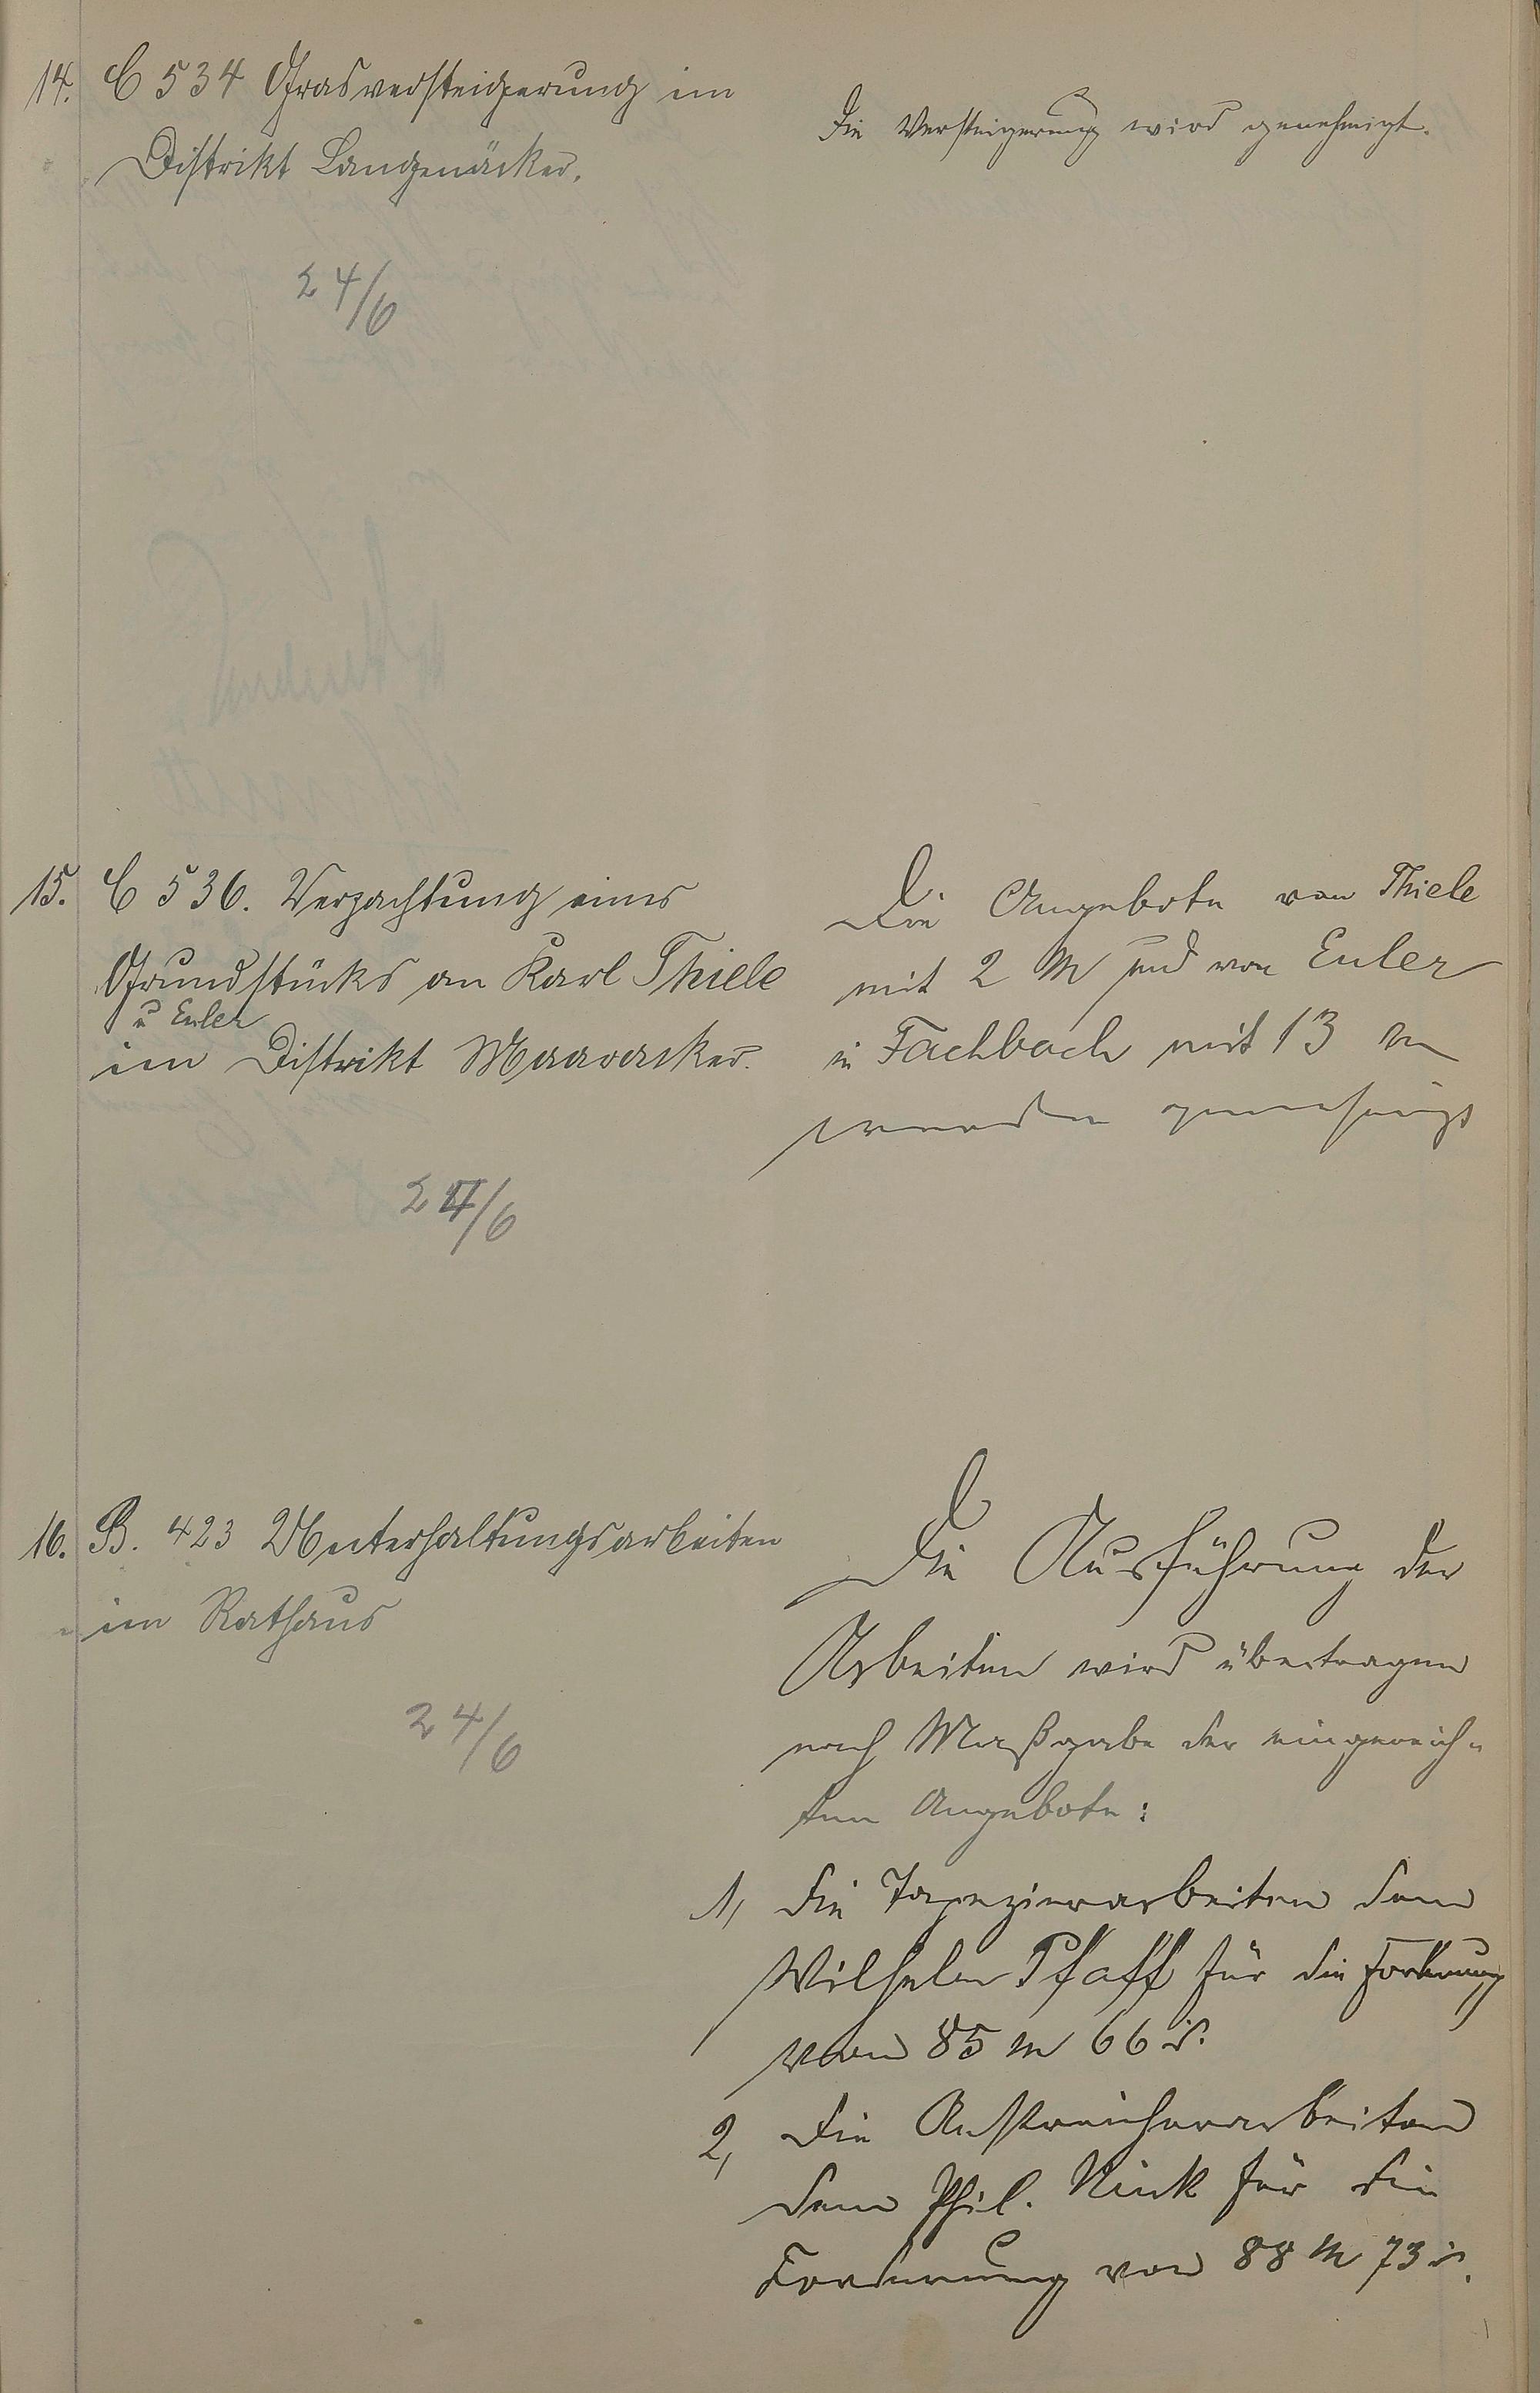 14. C 534 Grasversteigerung im
Distrikt Langenäcker.
24/6
Die Versteigerung wird genehmigt.
15. C 536. Verpachtung eines
Grundstücks an Karl Thiele
u Euler
im Distrikt Maaracker.
24/6
Die Angebote von Thiele
mit 2 M und von Euler
in Fachbach mit 13 M
werden genehmigt
16. B. 423 Unterhaltungsarbeiten
im Rathaus
24/6
Die Ausführung der
Arbeiten wird übertragen
nach Maßgabe der eingereich-
ten Angebote:
1, die Tapezierarbeiten dem
Wilhelm Pfaff für die Forderung
von 85 M 66 ₰.
2, die Anstreicherarbeiten
dem Phil. Kink für die
Forderung von 88 M 73 ₰.